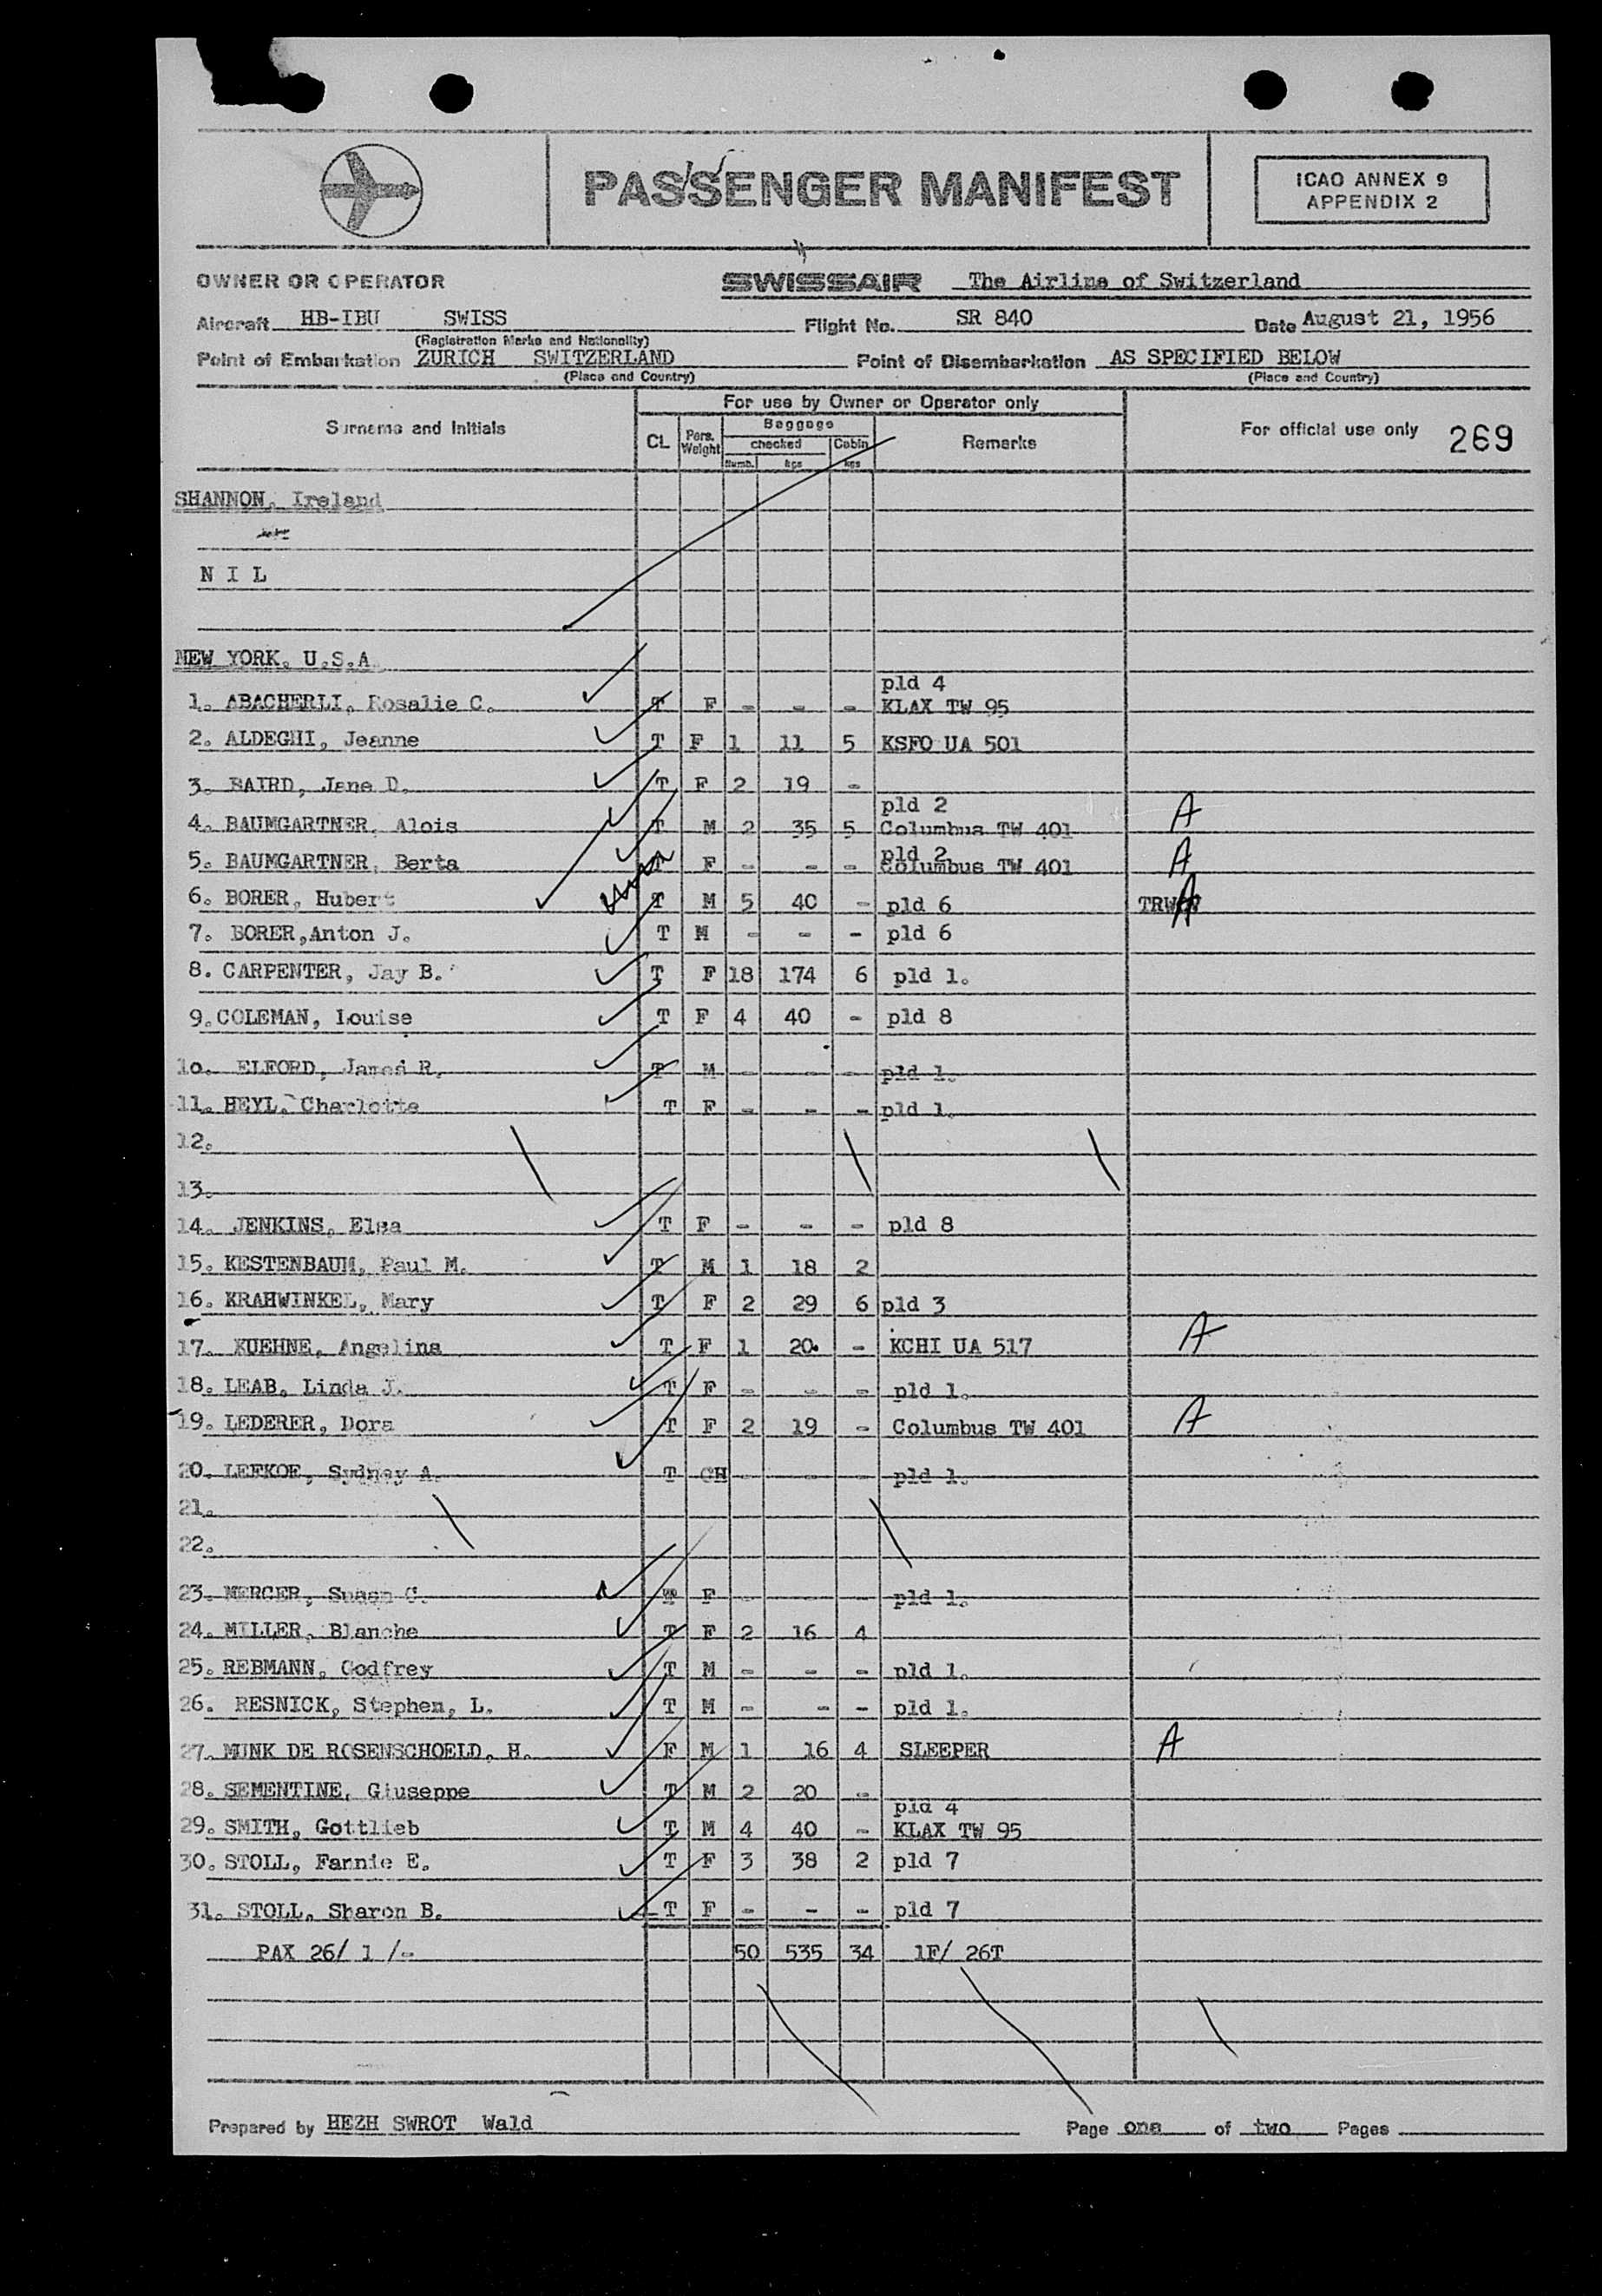 PASSENGER MANIFEST
ICAO ANNEX 9
APPENDIX 2
OWNER OR OPERATOR SWISSAIR The Airline of Switzerland
Aircraft HB-IBU SWISS Flight No. SR 840 Date August 21, 1956
(Registration Marks and Nationality)
Point of Embarkation ZURICH SWITZERLAND Point of Disembarkation AS SPECIFIED BELOW
(Place and Country) (Place and Country)
For use by Owner or Operator only
Surname and Initials CL Pers. Weight Baggage checked Numb. kgs Cabin kgs Remarks For official use only 269
SHANNON, Ireland
N I L
NEW YORK, U.S.A
pld 4
1. ABACHERLI, Rosalie C. T F - - - KLAX TW 95
2. ALDEGHI, Jeanne T F 1 11 5 KSFO UA 501
3. BAIRD, Jane D. T F 2 19 -
pld 2
4. BAUMGARTNER, Alois T M 2 35 5 Columbus TW 401 A
pld 2
5. BAUMGARTNER, Berta T F - - - Columbus TW 401 A
6. BORER, Hubert T M 5 40 - pld 6 A
7. BORER,Anton J. T M - - - pld 6
8. CARPENTER, Jay B. T F 18 174 6 pld 1.
9.COLEMAN, Louise T F 4 40 - pld 8
1o. ELFORD, James R. T M - - - pld 1.
11. HEYL, Charlotte T F - - - pld 1.
12.
13.
14. JENKINS, Elsa T F - - - pld 8
15. KESTENBAUM, Paul M. T M 1 18 2
16. KRAHWINKEL, Mary T F 2 29 6 pld 3
17. KUEHNE, Angelina T F 1 20. - KCHI UA 517 A
18. LEAB, Linda J. T F - - - pld 1.
19. LEDERER, Dora T F 2 19 - Columbus TW 401 A
20. LEFKOE, Sydney A. T CH - - - pld 1.
21.
22.
23. MERCER, Susan C. T F - - - pld 1.
24. MILLER, Blanche T F 2 16 4
25. REBMANN, Godfrey T M - - - pld 1.
26. RESNICK, Stephen, L. T M - - - pld 1.
27. MUNK DE ROSENSCHOELD, H. F M 1 16 4 SLEEPER A
28. SEMENTINE, Giuseppe T M 2 20 -
pld 4
29. SMITH, Gottlieb T M 4 40 - KLAX TW 95
30. STOLL, Fannie E. T F 3 38 2 pld 7
31. STOLL, Sharon B. T F - - - pld 7
PAX 26/ 1 /- 50 535 34 1F/ 26T
Prepared by HEZH SWROT Wald Page one of two Pages